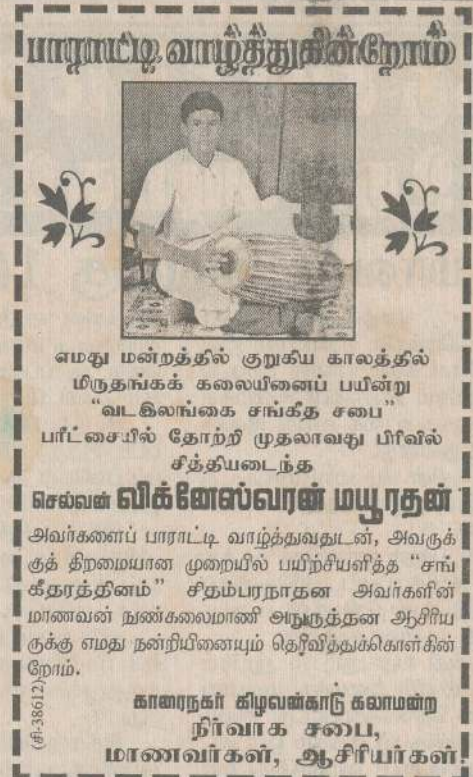 பாராட்டி வாழ்த்துகின்றோம்
எமது மன்றத்தில் குறுகிய காலத்தில்
மிருதங்கக் கலையினைப் பயின்று
“வடஇலங்கை சங்கீத சபை”
பரீட்சையில் தோற்றி முதலாவது பிரிவில்
சித்தியடைந்த
செல்வன் விக்னேஸ்வரன் மயூரதன்
அவர்களைப் பாராட்டி வாழ்த்துவதுடன், அவருக்
குத் திறமையான முறையில் பயிற்சியளித்த “சங்
கீதரத்தினம்” சிதம்பரநாதன அவர்களின்
மாணவன் நுண்கலைமாணி அநுருத்தன ஆசிரிய
ருக்கு எமது நன்றியினையும் தெரிவித்துக்கொள்கின்
றோம்.
காரைநகர் கிழவன்காடு கலாமன்ற
நிர்வாக சபை,
மாணவர்கள், ஆசிரியர்கள்
(சி-38612)